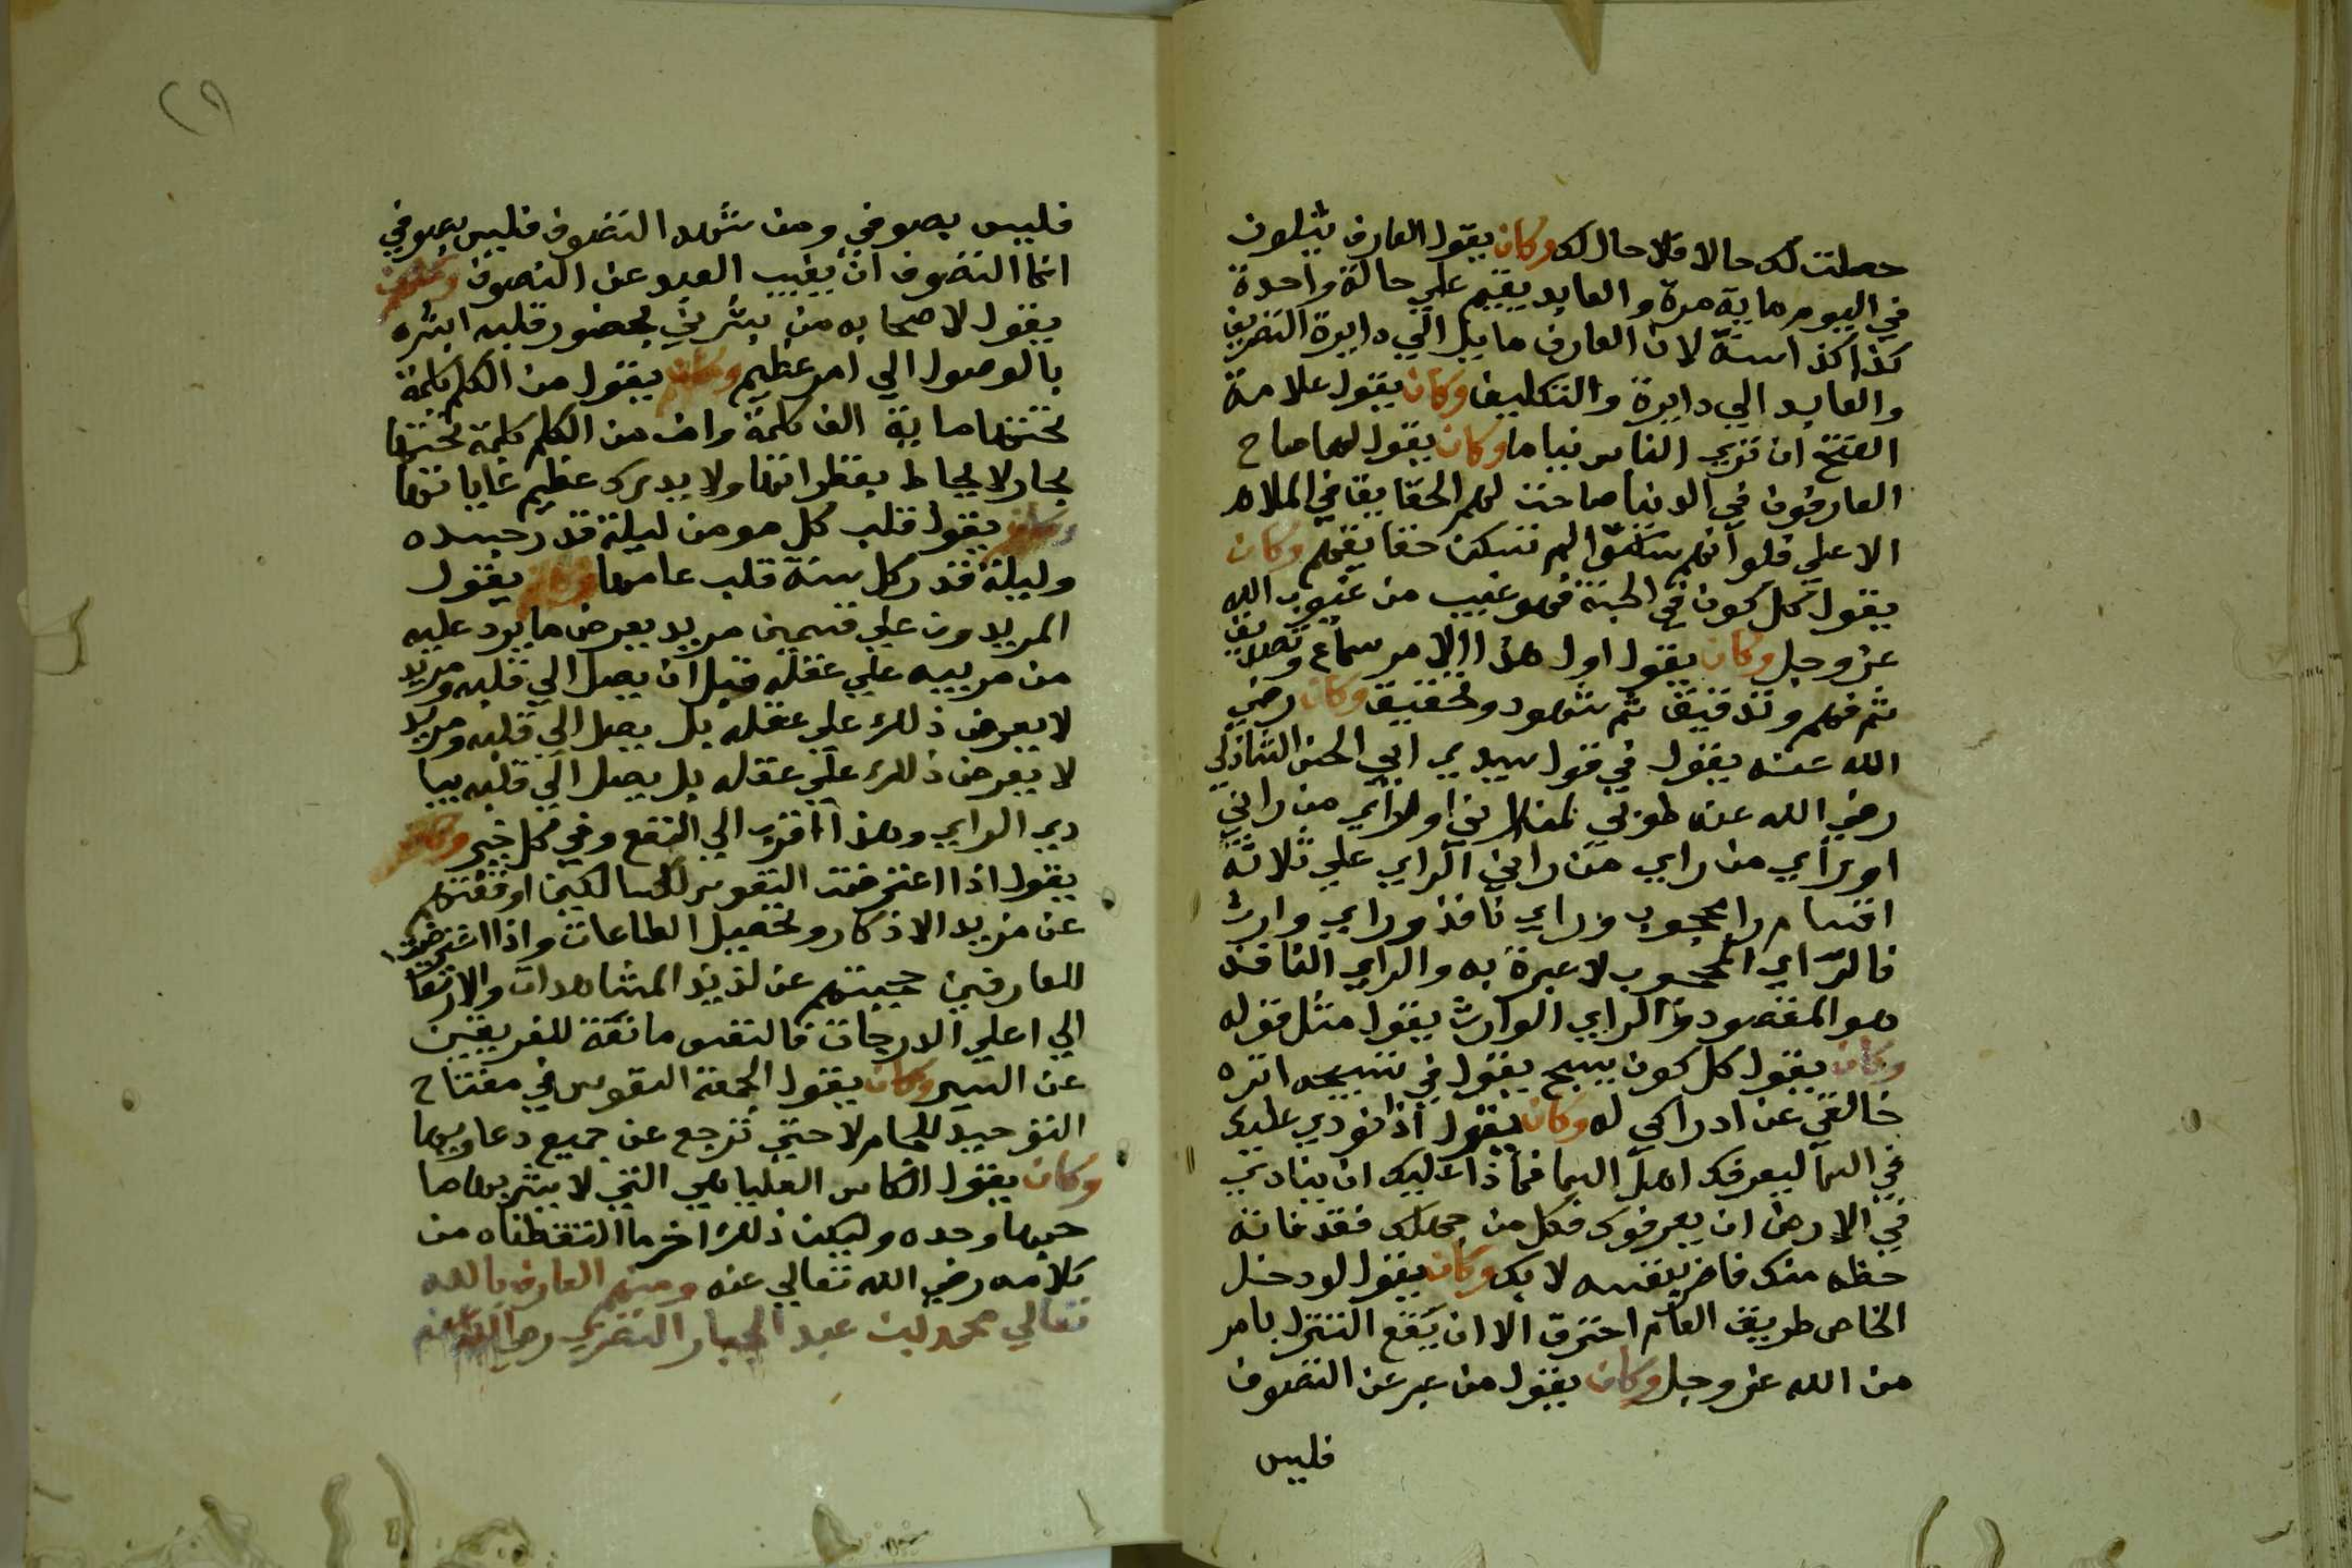 جعلت لك حالا فلا حال لك وكان يقول العارف يتلون
في اليوم ماية مرة والعابد يقيم علي حالة واحدة
كذا كذا سنة لان العارف مايل الي دايرة التصريف
والعابد الي دايرة والتكليف وكان يقول علامة
الفتح ان تري الناس نياما وكان يقول لما صاح
العارفون في الدنيا صاحت لهم الحقايق في الملاء
الاعلي فلو انهم سكتوا لم تسكن حقايقهم وكان
يقول كل كون في الجنة فهو غيب من غيوب الله
عز وجل وكان يقول اول هذا الامر سماع وتصديق
ثم فهم وتدقيق ثم شهود وتحقيق وكان رضي
الله عنه يقول في قول سيدي ابي الحسن الشاذلي
رضي الله عنه طوبي لمن راني او راي من راني
او راي من راي من راني الراي علي ثلاثة
اقسام راي محجوب وراي نافذ وراي وارث
فالراي المحجوب لا عبرة به والراي النافذ
هو المقصود والراي الوارث يقول مثل قوله
وكان يقول كل كون يسبح يقول في تسبيحه اتره
خالقي عن ادراكي له وكان يقول اذا نودي عليك
في السما ليعرفك اهل السما فماذا عليك ان ينادي
في الارض ان يعرفوك فكل من جهلك فقد فاته
حظه منك فاضر بنفسه لا بك وكان يقول لو دخل
الخاص طريق العام احترق الا ان يقع التنزل بامر
من الله عز وجل وكان يقول من عبر عن التصوف
فليس
٢٩
فليس بصوفي ومن شهد التصوف فليس بصوفي
انما التصوف ان يغيب العبد عن التصوف وكان
يقول لاصحابه من بشرني بحضور قلبه ابشره
بالوصول الي امر عظيم وكان يقول من الكلم كلمة
تحتها ماية الف كلمة وان من الكلم كلمة تحتها
بحار لا يحاط بقطراتها ولا يدرك عظيم غاياتها
وكان يقول قلب كل مومن ليلة قدر جسده
وليلة قدر كل سنة قلب عامها وكان يقول
المريدون علي قسمين مريد يعرض ما يرد عليه
من مربيه علي عقله قبل ان يصل الي قلبه ومريد
لا يعرض ذلك علي عقله بل يصل الي قلبه ومريد
لا يعرض ذلك علي عقله بل يصل الي قلبه ببا
دي الراي وهذا اقرب الي النفع وفي كل خير وكان
يقول اذا اعترضت النفوس للسالكين اوقفتهم
عن مزيد الاذكار وتحصيل الطاعات واذا اعترضت
للعارفين حجبتهم عن لذيذ المشاهدات والارتقا
الي اعلي الدرجات فالنفس مانعة للفريقين
عن السير وكان يقول الجمة النفوس في مفتاح
التوحيد للجام لا حتي ترجع عن جميع دعاويها
وكان يقول الكاس العليا هي التي لا يشربها ما
حبها وحده وليكن ذلك اخر ما التقطناه من
كلامه رضي الله تعالي عنه ومنهم العارف بالله
تعالي محمد بن عبد الجبار النفري رضي الله عنه